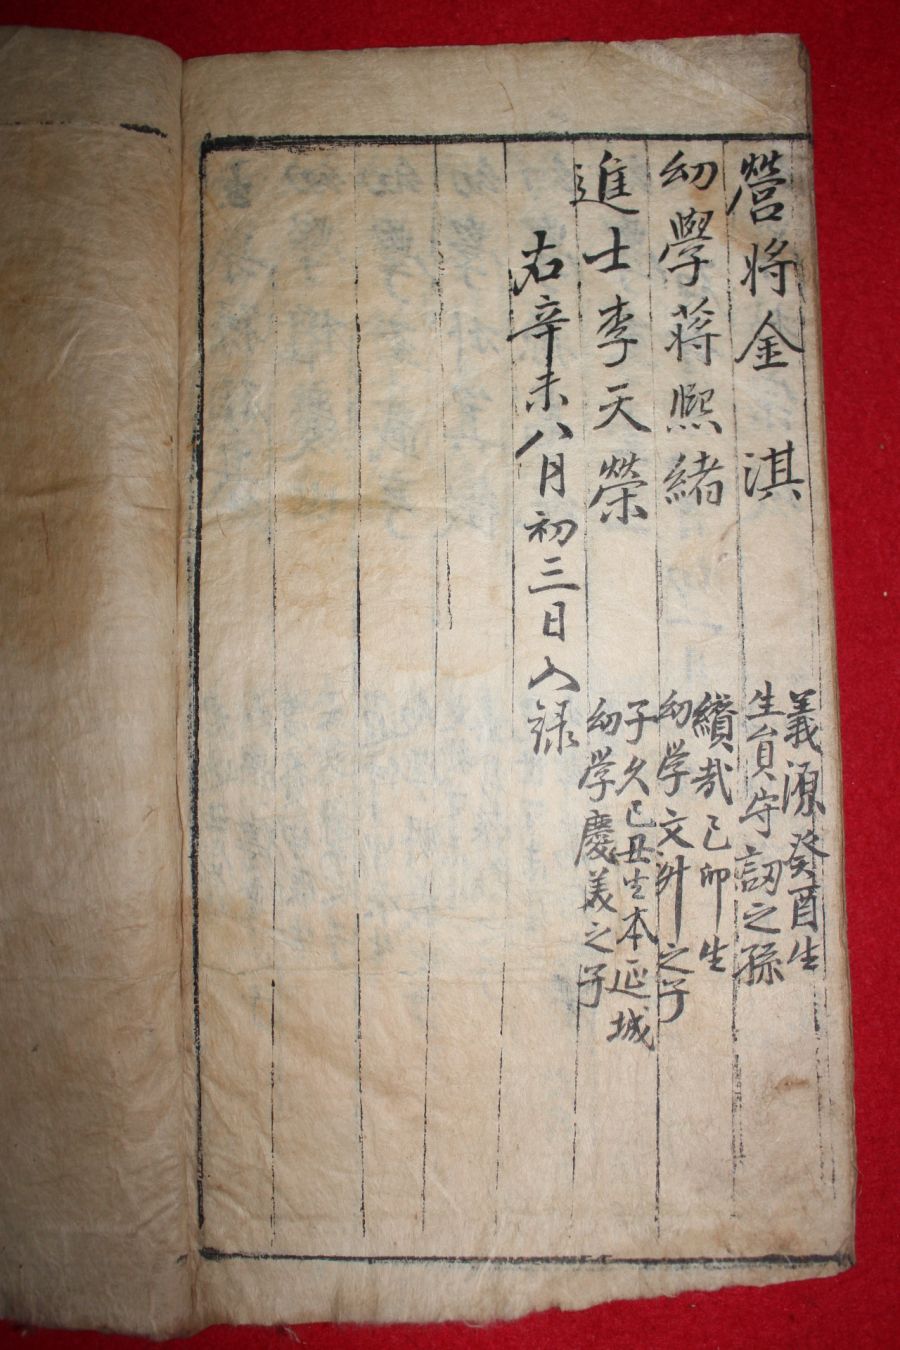 營將金淇
義源癸酉生
生員守訒之孫
幼學蔣熙緖
纘哉己卯生
幼學文升之子
進士李天榮
子久己丑生本延城
幼學慶義之子
右辛未八月初三日入録